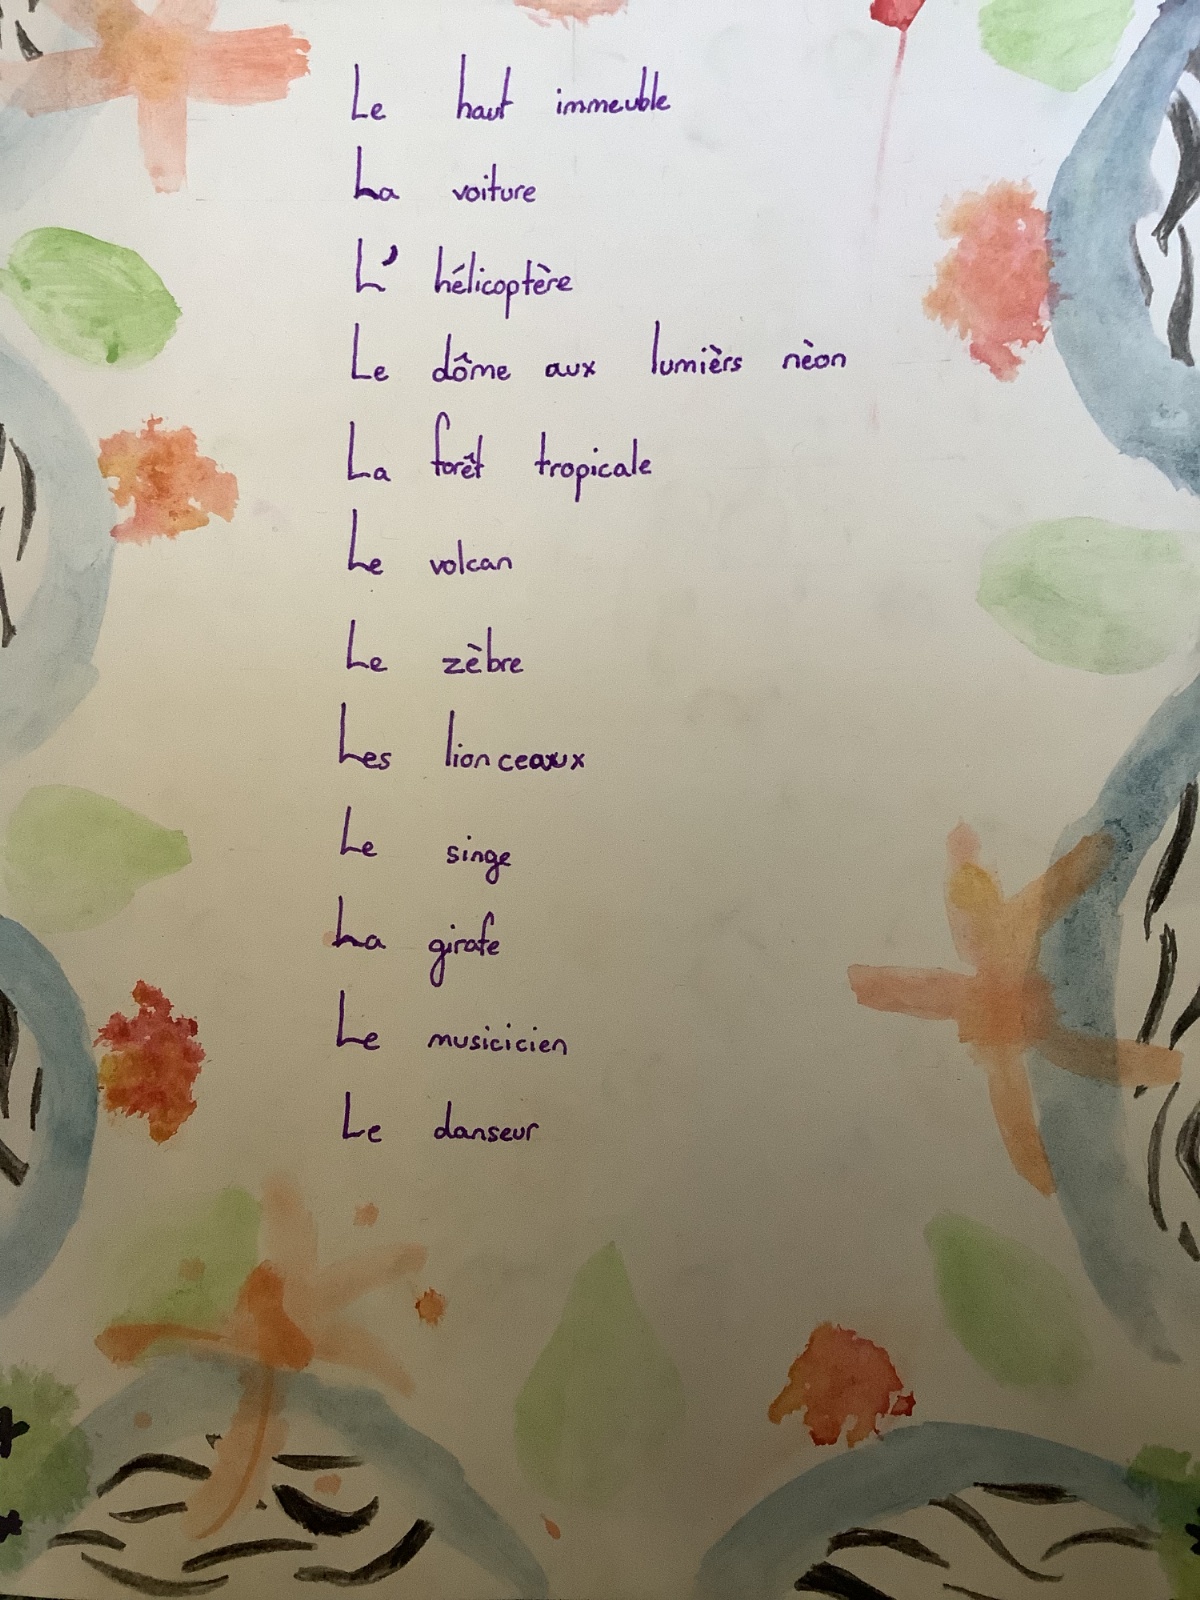 Le haut immeuble
La voiture
L' hélicoptère
Le dôme aux lumièrs nèon
La forêt tropicale
Le volcan
Le zèbre
Les lionceaux
Le singe
La girafe
Le musicicien
Le danseur